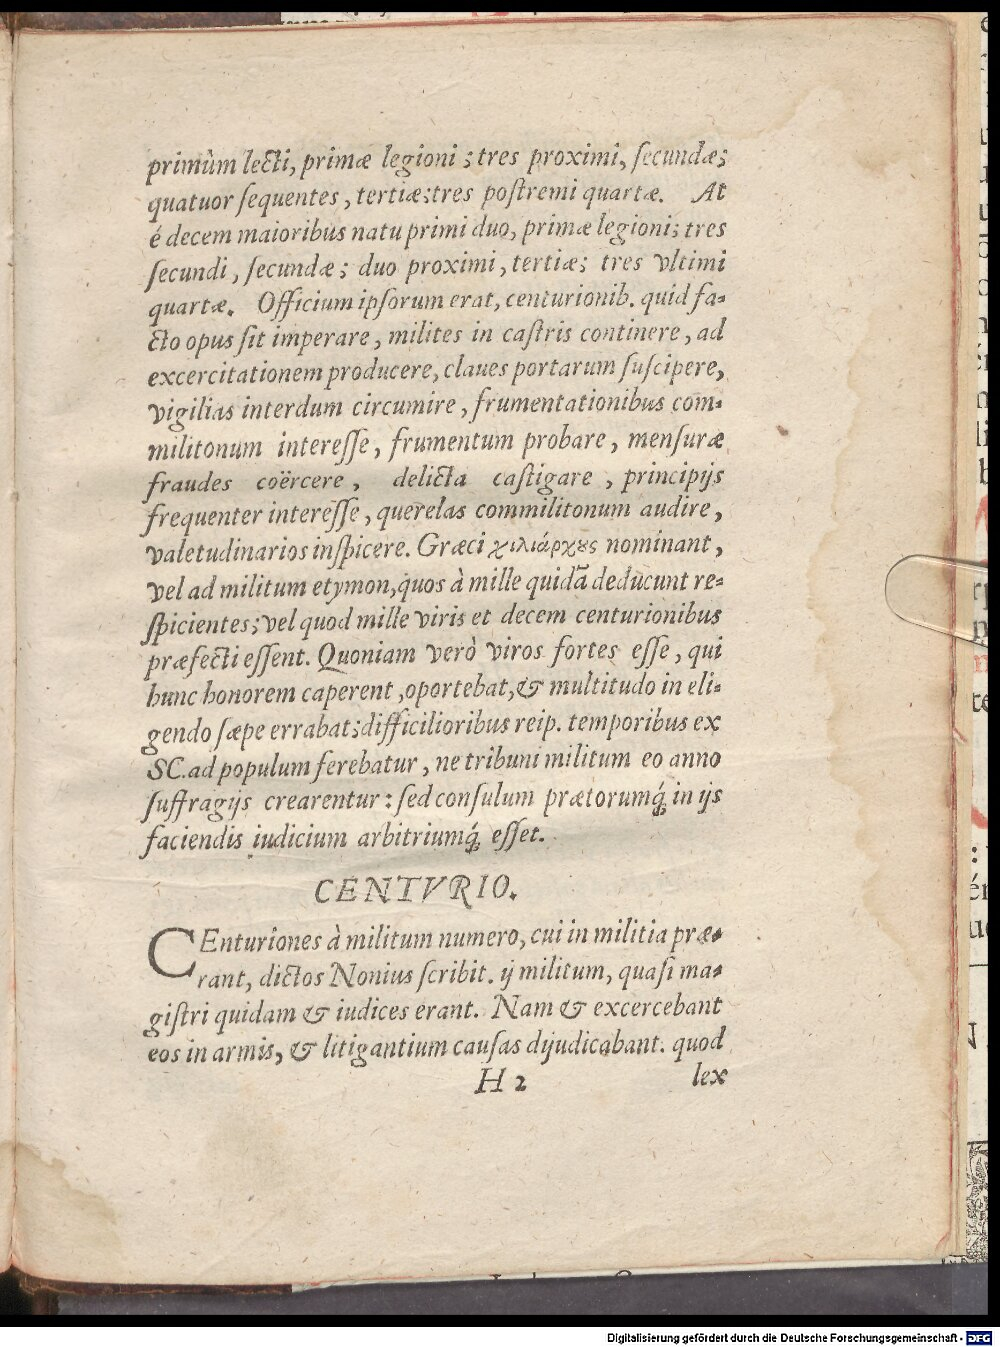 primùm lecti, primæ legioni; tres proximi, ſecundæ;
quatuor ſequentes, tertiæ; tres poſtremi quartæ. At
é decem maioribus natu primi duo, primæ legioni; tres
ſecundi, ſecundæ; duo proximi, tertiæ; tres vltimi
quartæ. Officium ipſorum erat, centurionib. quid fa-
cto opus ſit imperare, milites in caſtris continere, ad
excercitationem producere, claues portarum ſuſcipere,
vigilias interdum circumire, frumentationibus com-
militonum intereſſe, frumentum probare, menſuræ
fraudes coërcere, delicta caſtigare, principijs
frequenter intereſſe, querelas commilitonum audire,
valetudinarios inſpicere. Græci χιλιάρχȣς nominant,
vel ad militum etymon, quos à mille quidã deducunt re-
ſpicientes; vel quod mille viris et decem centurionibus
præfecti eſſent. Quoniam verò viros fortes eſſe, qui
hunc honorem caperent, oportebat, & multitudo in eli-
gendo ſæpe errabat; difficilioribus reip. temporibus ex
SC. ad populum ferebatur, ne tribuni militum eo anno
ſuffragijs crearentur: ſed conſulum prætorumq́; in ijs
faciendis iudicium arbitriumq́; eſſet.
CENTVRIO.
CEnturiones à militum numero, cui in militia præ-
rant, dictos Nonius ſcribit. ij militum, quaſi ma-
giſtri quidam & iudices erant. Nam & excercebant
eos in armis, & litigantium cauſas dijudicabant. quod
H 2 lex
Digitalisierung gefördert durch die Deutsche Forschungsgemeinschaft - DFG